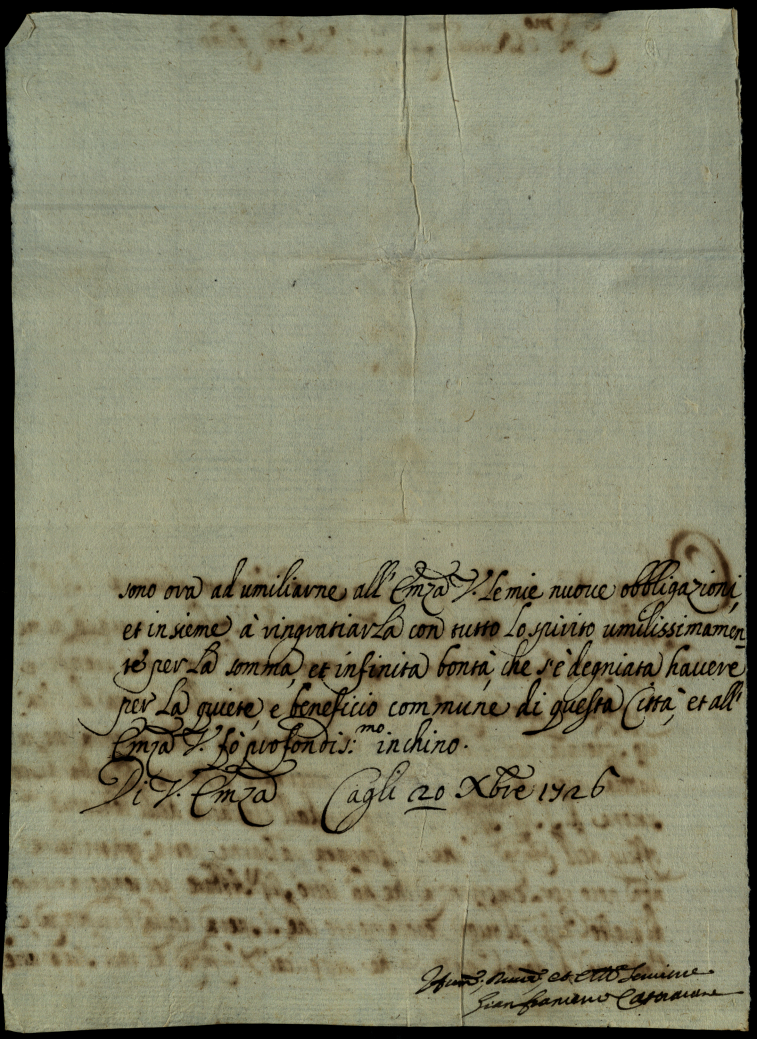 sono ora ad umiliarne all'Emza V. le mie nuove obbligazioni,
et insieme à ringratiarla con tutto lo spirito umilissimamen-
te per la somma, et infinita bontà, che s'è degniata havere
per la quiete, e beneficio commune di questa Città, et all'
Emza V. fò profondis:mo inchino.
Di V. Emza Cagli 20 Xbre 1726
Hum.o et
Gian Francesco